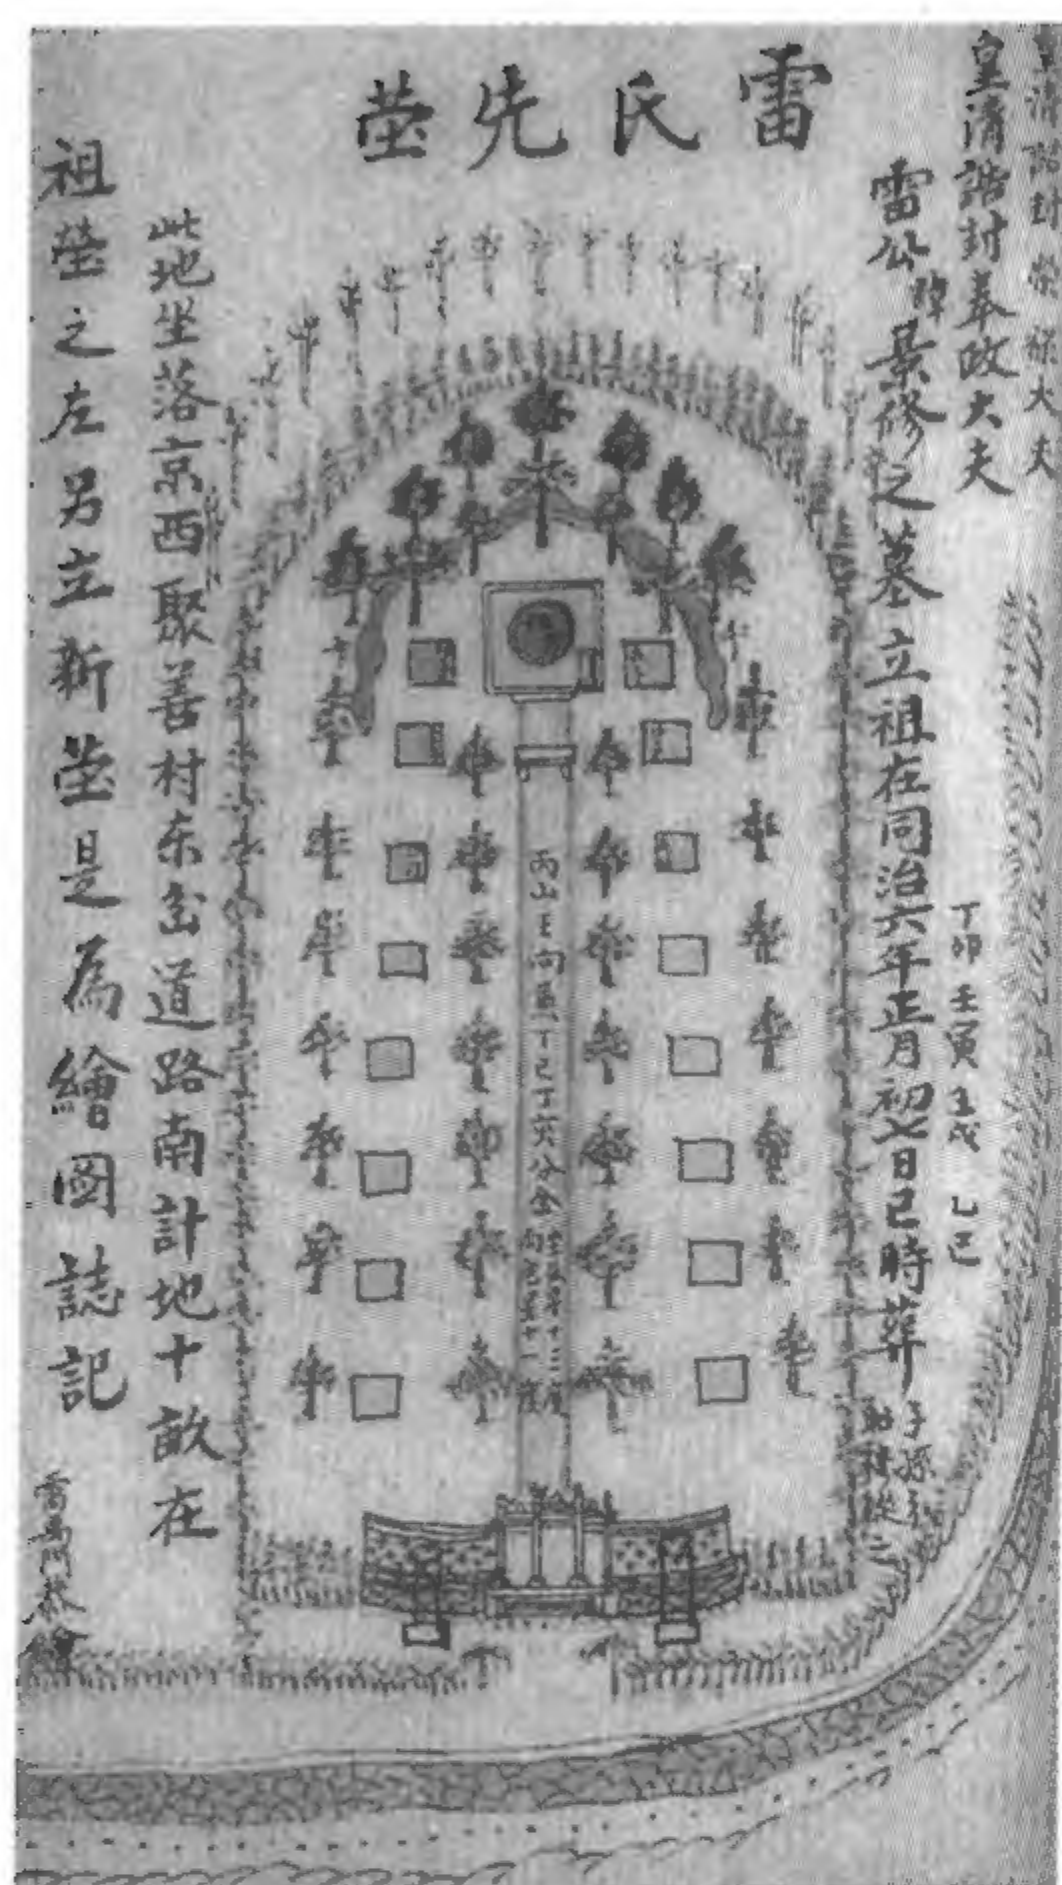 雷氏先茔
皇清誥封榮祿大夫
皇清誥封奉政大夫
雷公諱景修之墓立祖在同治六年正月初七日巳時葬
丁卯 壬寅 壬戌 乙巳
丙山壬向
此地坐落京西聚善村东岔道路南計地十畝在
祖塋之左另立新茔是為繪圖誌記